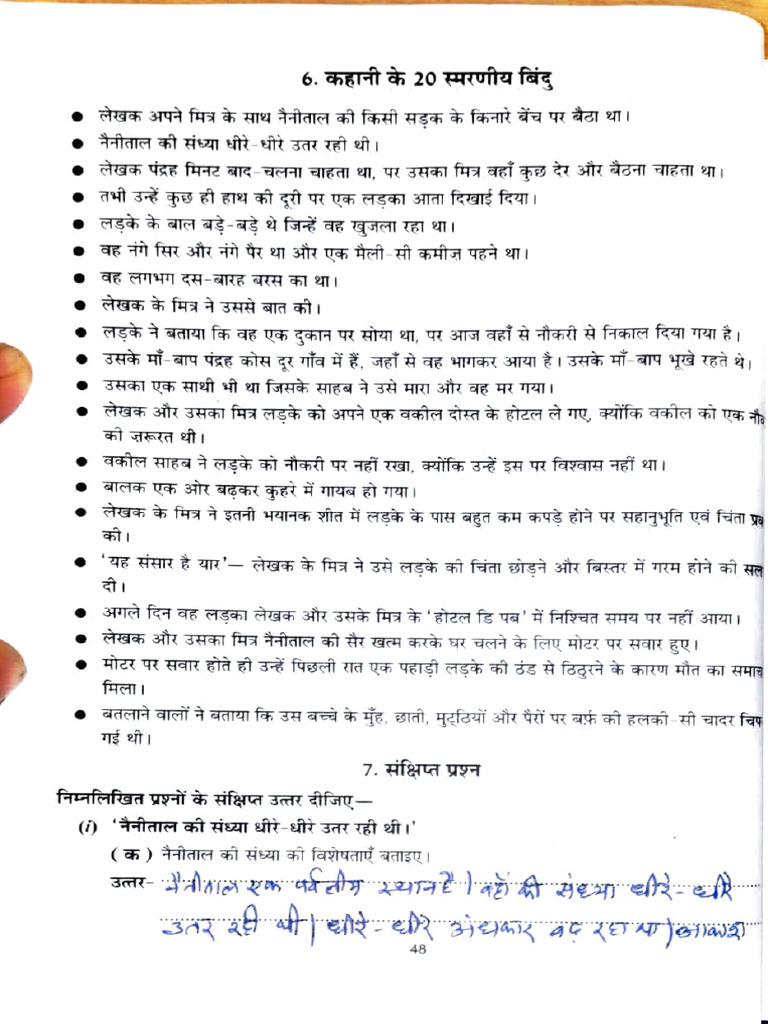 6. कहानी के 20 स्मरणीय बिंदु
● लेखक अपने मित्र के साथ नैनीताल की किसी सड़क के किनारे बेंच पर बैठा था।
● नैनीताल की संध्या धीरे-धीरे उतर रही थी।
● लेखक पंद्रह मिनट बाद-चलना चाहता था, पर उसका मित्र वहाँ कुछ देर और बैठना चाहता था।
● तभी उन्हें कुछ ही हाथ की दूरी पर एक लड़का आता दिखाई दिया।
● लड़के के बाल बड़े-बड़े थे जिन्हें वह खुजला रहा था।
● वह नंगे सिर और नंगे पैर था और एक मैली-सी कमीज़ पहने था।
● वह लगभग दस-बारह बरस का था।
● लेखक के मित्र ने उससे बात की।
● लड़के ने बताया कि वह एक दुकान पर सोया था, पर आज वहाँ से नौकरी से निकाल दिया गया है।
● उसके माँ-बाप पंद्रह कोस दूर गाँव में हैं, जहाँ से वह भागकर आया है। उसके माँ-बाप भूखे रहते थे।
● उसका एक साथी भी था जिसके साहब ने उसे मारा और वह मर गया।
● लेखक और उसका मित्र लड़के को अपने एक वकील दोस्त के होटल ले गए, क्योंकि वकील को एक नौ
की ज़रूरत थी।
● वकील साहब ने लड़के को नौकरी पर नहीं रखा, क्योंकि उन्हें इस पर विश्वास नहीं था।
● बालक एक ओर बढ़कर कुहरे में गायब हो गया।
● लेखक के मित्र ने इतनी भयानक शीत में लड़के के पास बहुत कम कपड़े होने पर सहानुभूति एवं चिंता प्र
की।
● 'यह संसार है यार'— लेखक के मित्र ने उसे लड़के की चिंता छोड़ने और बिस्तर में गरम होने की सल
दी।
● अगले दिन वह लड़का लेखक और उसके मित्र के 'होटल डि पब' में निश्चित समय पर नहीं आया।
● लेखक और उसका मित्र नैनीताल की सैर खत्म करके घर चलने के लिए मोटर पर सवार हुए।
● मोटर पर सवार होते ही उन्हें पिछली रात एक पहाड़ी लड़के की ठंड से ठिठुरने के कारण मौत का समाच
मिला।
● बतलाने वालों ने बताया कि उस बच्चे के मुँह, छाती, मुट्ठियों और पैरों पर बर्फ़ की हलकी-सी चादर चिप
गई थी।
7. संक्षिप्त प्रश्न
निम्नलिखित प्रश्नों के संक्षिप्त उत्तर दीजिए—
(i) 'नैनीताल की संध्या धीरे-धीरे उतर रही थी।'
(क) नैनीताल की संध्या की विशेषताएँ बताइए।
उत्तर- नैनीताल एक पर्वतीय स्थान है। वहाँ की संध्या धीरे-धीरे
उतर रही थी। धीरे-धीरे अंधकार बढ़ रहा था। आकाश
48